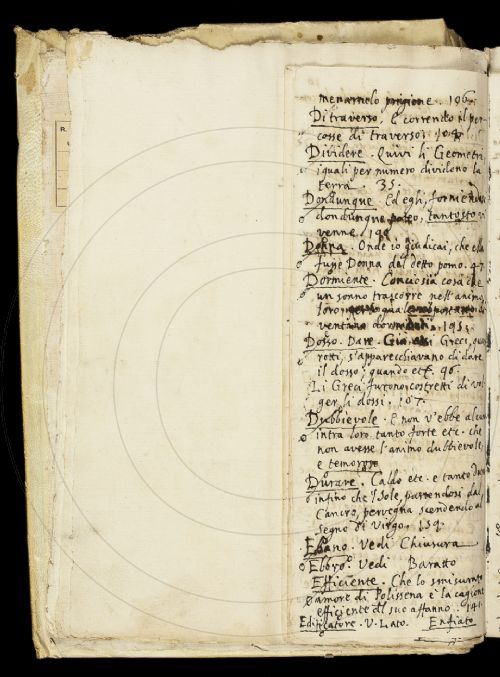 menarnelo prigione. 196.
Di traverso. E correndo il per
cosse di traverso. 104.
Dividere. Quivi li Geometri,
i quali per numero dividono la
terra. 35.
Dondunque. Ed egli, fornendo
dondunque poteo, tantosto vi
venne. 199
Donna. Onde io giudicai, che ella
fusse Donna del detto pomo. 47.
Dormiente. Conciosia cosa che
un sonno trascorre nell'animo
loro
ventura 195.
Dosso. Dare. Già essi Greci, quasi
rotti, s'apparecchiavano di dare
il dosso; quando etc. 96.
Li Greci furono costretti di vol
ger li dossi. 107.
Dubbievole. E non v'ebbe alcun
intra loro tanto forte etc. che
non avesse l'animo dubbievole,
e temoroso
Durare. Caldo etc. e tanto dura
infino che 'l sole, partendosi dal
Cancro, pervegna scendendo al
segno di Virgo. 159.
Ebano. Vedi Chiusura
Ebbro. Vedi Baratto
Efficiente. Che lo smisurato
amore di Polissena è la cagione
efficiente del suo affanno. 141.
Edificatore. V. Lato. Enfiato
R.